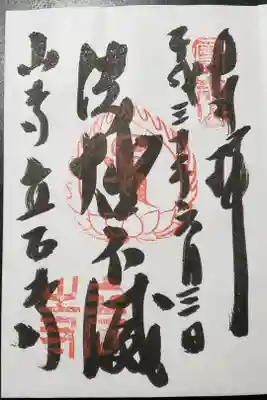 奉拝
平成三十年六月三日
法燈不滅
山寺 立石寺